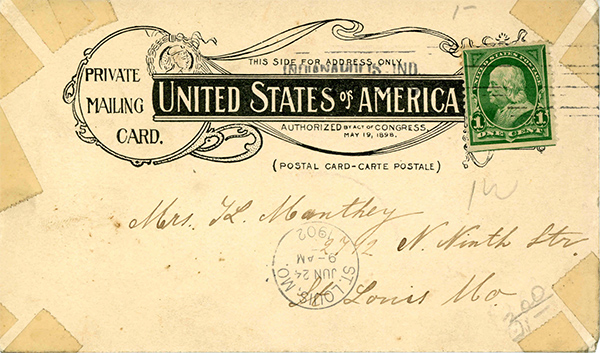 PRIVATE
MAILING
CARD.
THIS SIDE FOR ADDRESS ONLY
INDIANAPOLIS, IND.
UNITED STATES OF AMERICA
AUTHORIZED BY ACT OF CONGRESS,
MAY 19, 1898.
(POSTAL CARD-CARTE POSTALE)
UNITED STATES POSTAGE
1 1
ONE CENT
Mrs. TL. Manthey
2712 N. Ninth Str.
St Louis Mo
ST. LOUIS, MO.
JUN 24
9-AM
1902